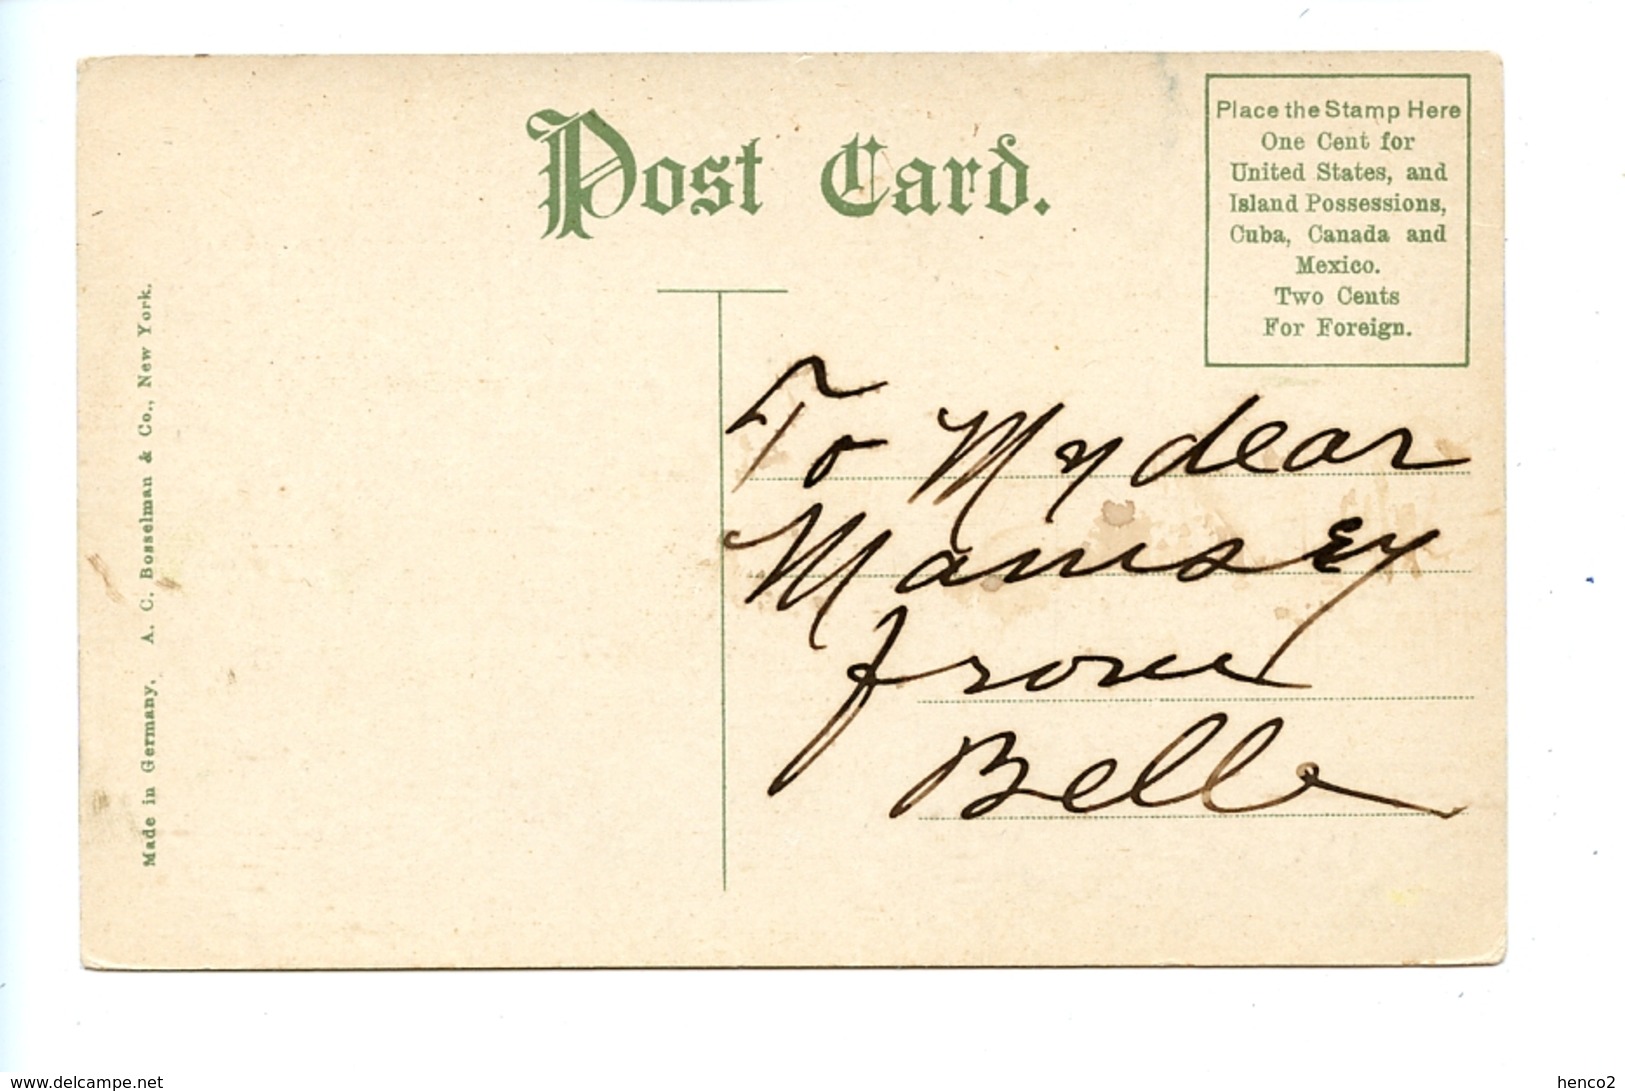 Post Card.
Place the Stamp Here
One Cent for
United States, and
Island Possessions,
Cuba, Canada and
Mexico.
Two Cents
For Foreign.
Made in Germany, A. C. Bosselman & Co., New York.
To My dear
Mamsey
from
Belle
www.delcampe.net
henco2